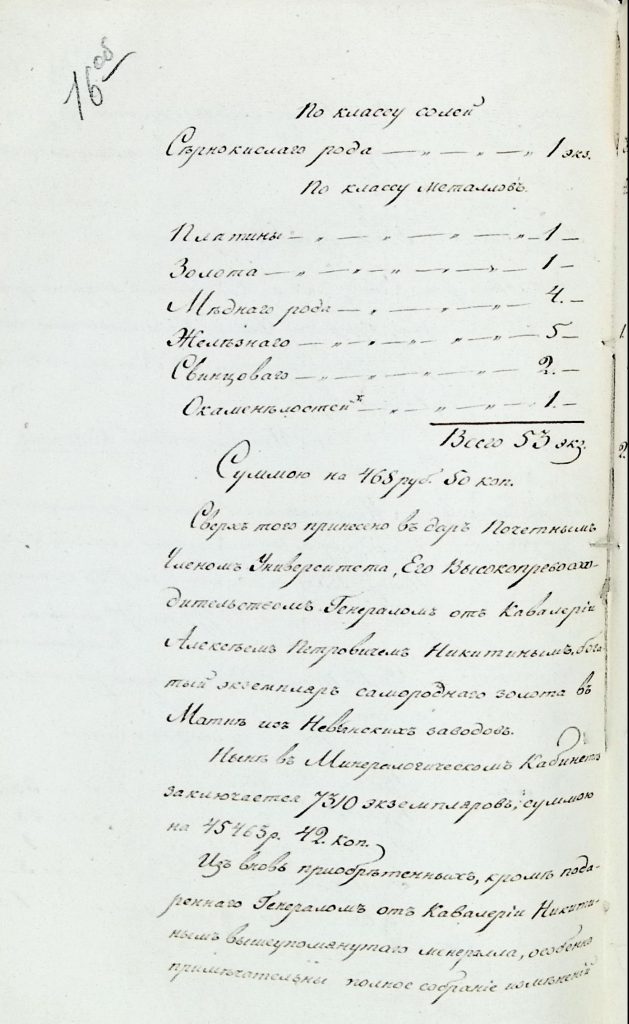 16 об
По классу солей
Сѣрнокислаго рода — „ — „ — „ 1 экз.
По классу металловъ.
Платины — „ — „ — „ — „ 1 —
Золота — „ — „ — „ — „ 1 —
Мѣднаго рода — „ — „ — „ 4. —
Желѣзнаго — „ — „ — „ — „ 5 —
Свинцоваго — „ — „ — „ — „ 2. —
Окаменѣлостей — „ — „ — „ 1. —
Всего 53 экз.
Суммою на 468 руб. 50 коп.
Сверхъ того принесено въ даръ Почетнымъ
Членомъ Университета, Его Высокопревосхо-
дительствомъ Генераломъ отъ Кавалеріи
Алексѣемъ Петровичемъ Никитинымъ, бога-
тый экземпляръ самороднаго золота въ
Маткѣ изъ Невьнскихъ заводовъ.
Нынѣ въ Минералогическомъ Кабинетѣ
заключается 7310 экземпляровъ, суммою
на 45463 р. 42. коп.
Изъ вновь приобрѣтенныхъ, кромѣ пода-
реннаго Генераломъ отъ Кавалеріи Никити-
нымъ вышеупомянутаго минерала, особенно
примѣчательны полное собраніе измѣненій